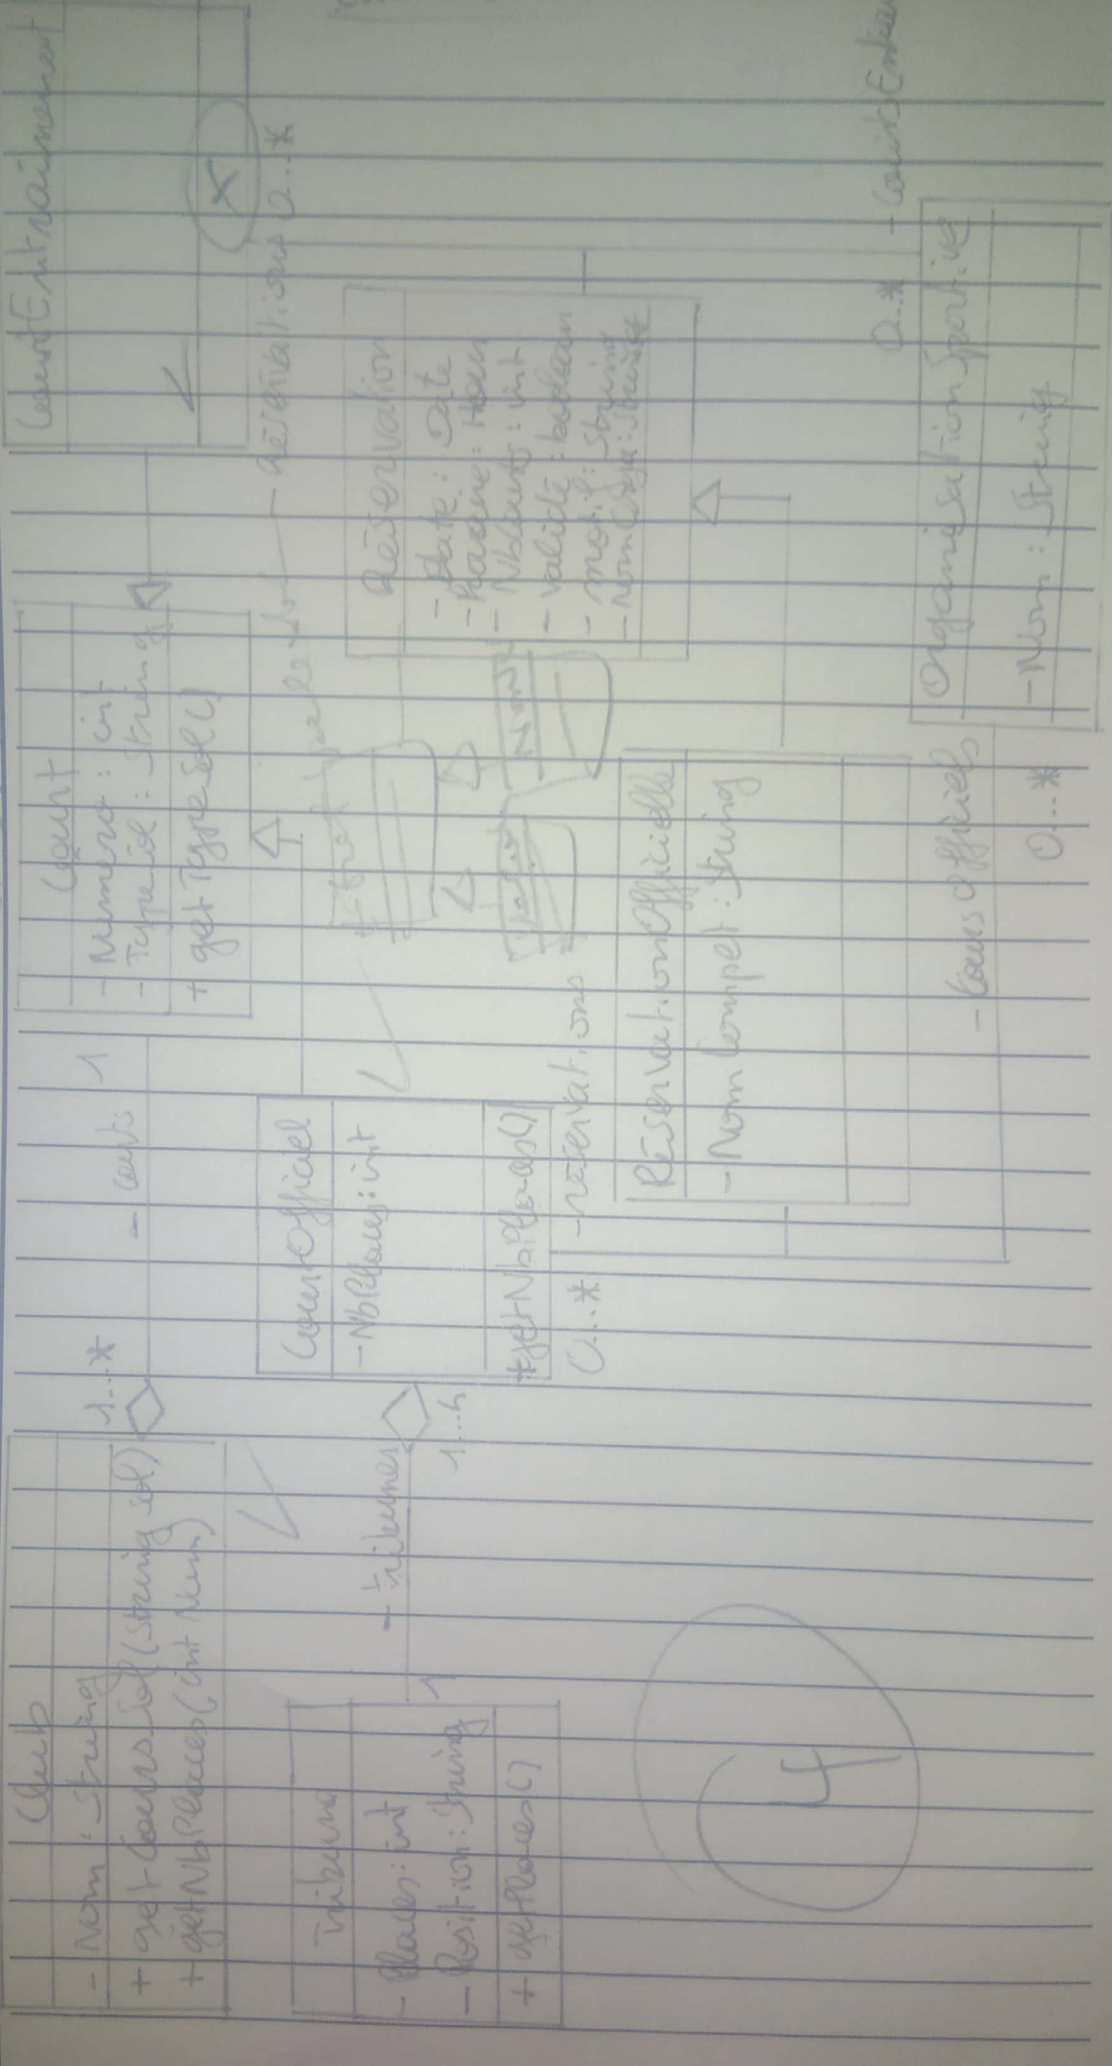 Club
- Nom : String
+ getCoursSol(String sol)
+ getNbPlaces(int Num)
1...*
- courts
1
Court
- Numero : int
- TypeSol : String
+ getTypeSol()
CourtEntrainement
X
Tribune
- Places : int
- Position : String
+ getPlaces()
1
- tribunes
1...4
CourtOfficiel
- NbPlaces : int
+ getNbPlaces()
0...*
- reservations
- reservations 0...*
Réservation
- Date : Date
- Heure : Hour
- NbCourts : int
- Validé : boolean
- motif : String
- NomOrga : String
RéservationOfficielle
- NomCompet : String
4
- CoursOfficiels
0...*
OrganisationSportive
- Nom : String
0...*